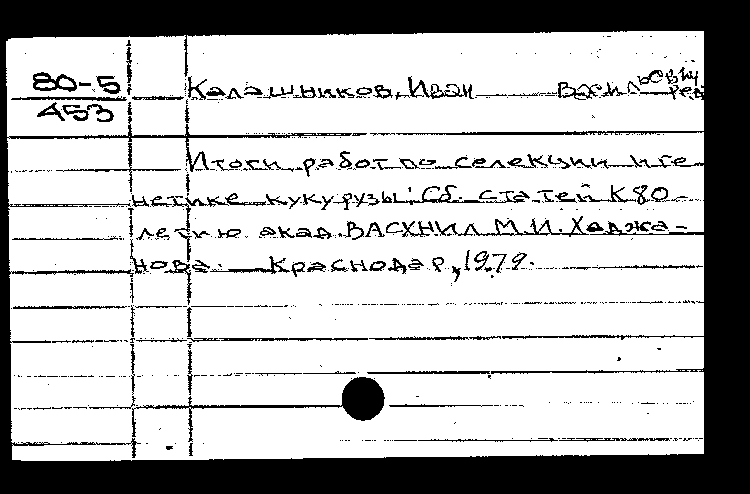 80-5
453
Калашников, Иван Васильевич, ред.
Итоги работ по селекции и ге-
нетике кукурузы: Сб. статей к 80-
летию акад. ВАСХНИЛ М.И. Хаджи-
нова. Краснодар, 1979.